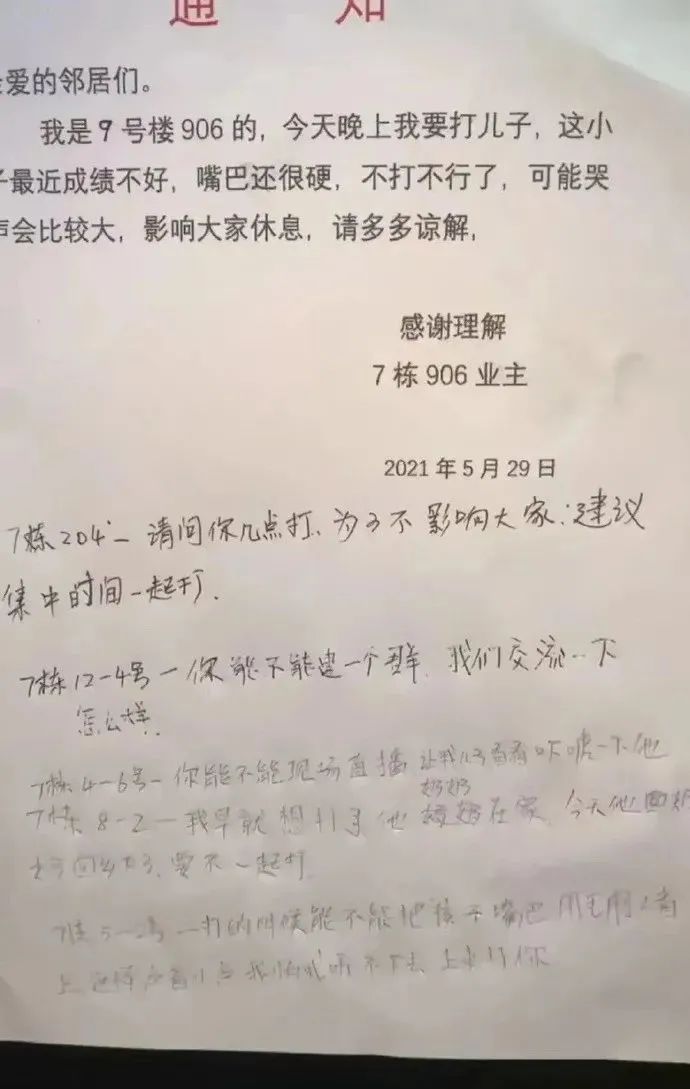 通 知
爱的邻居们。
我是9号楼906的，今天晚上我要打儿子，这小
子最近成绩不好，嘴巴还很硬，不打不行了，可能哭
声会比较大，影响大家休息，请多多谅解，
感谢理解
7栋906业主
2021年5月29日
7栋204-请问你几点打、为了不影响大家：建议
集中时间一起打.
7栋12-4号-你能不能建一个群，我们交流一下
怎么样.
7栋4-6号-你能不能现场直播让我儿子看看吓唬一下他
奶奶
7栋8-2-我早就想打了他在家，今天他奶奶
回乡下了，要不一起打
7栋 打的时候能不能把孩子嘴巴用毛巾
上 声音小点我怕我听不下去上来打你